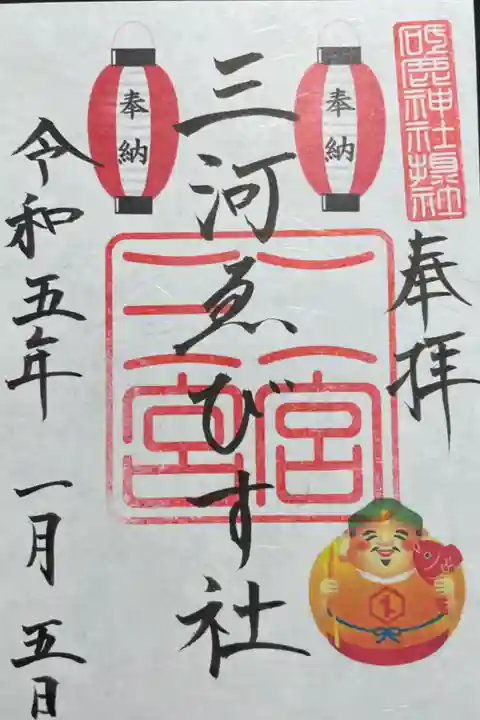 砥鹿神社摂社
奉拝
奉納
奉納
三河ゑびす社
二宮
三宮
令和五年 一月 五日